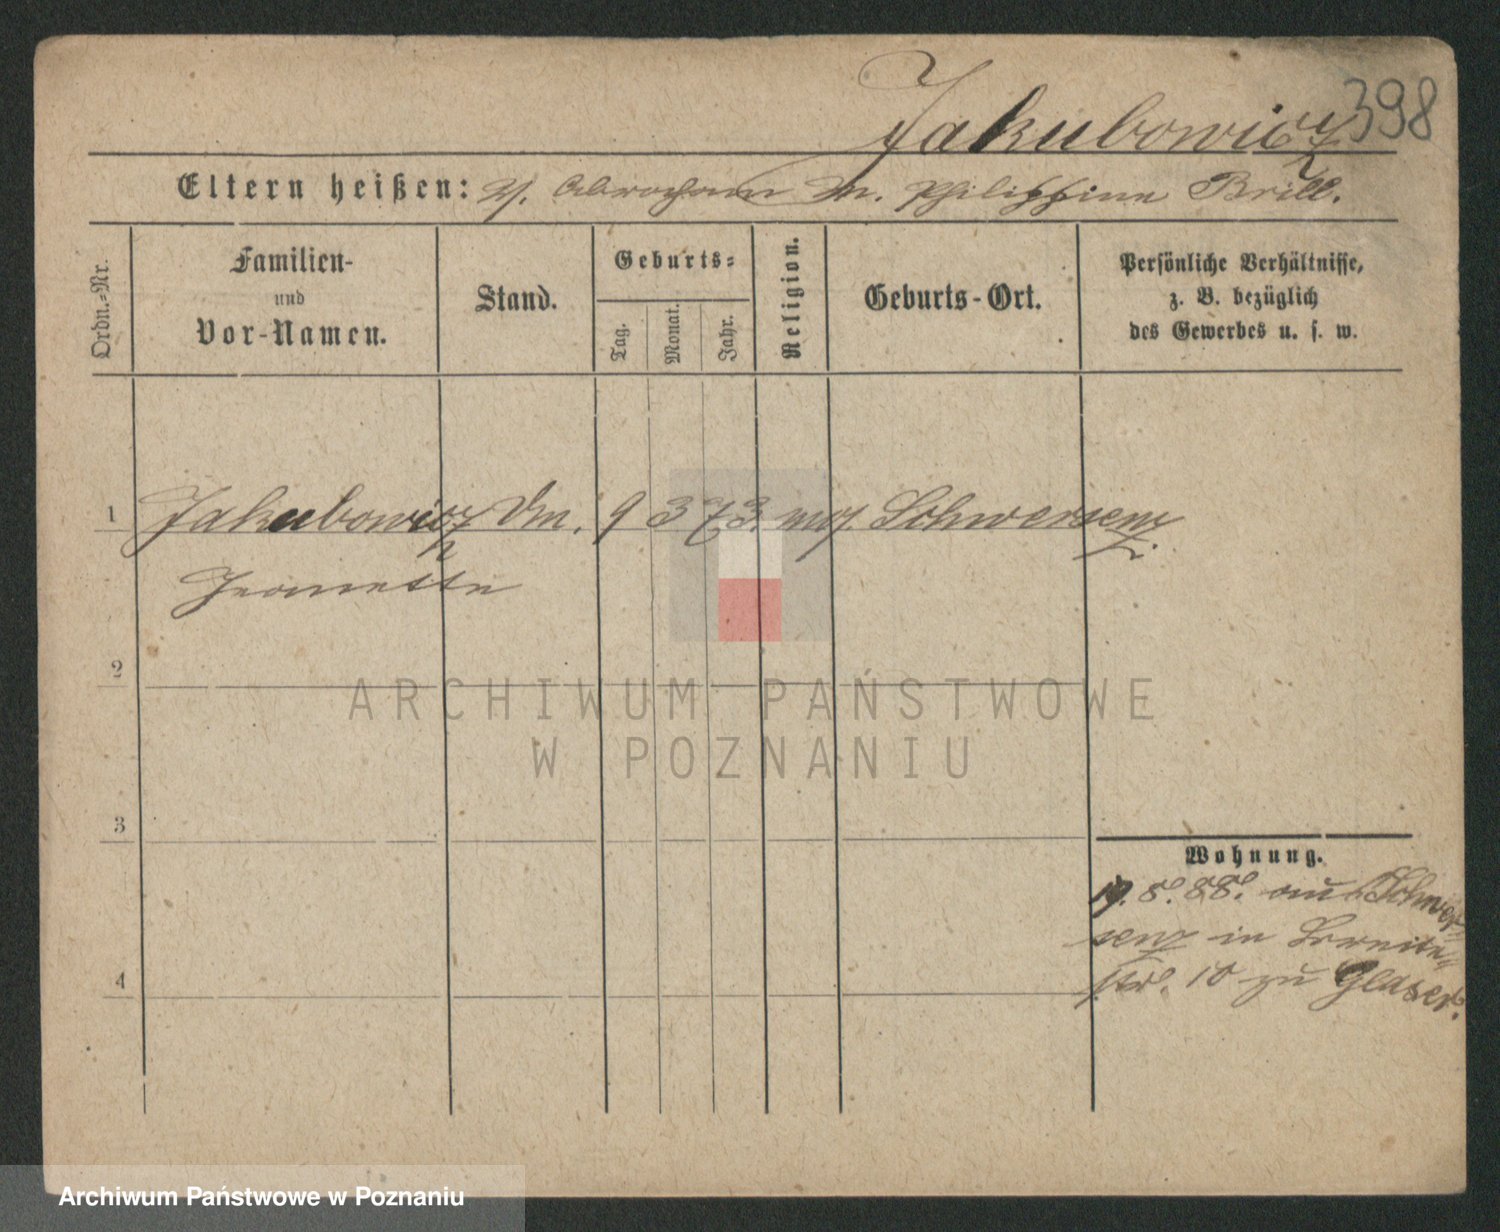 Jakubowicz 398
Eltern heißen: V. Abraham M. Philippine Brill.
Ordn.=Nr.
Familien-
und
Vor-Namen.
Stand.
Geburts=
Tag.
Monat.
Jahr.
Religion.
Geburts-Ort.
Persönliche Verhältnisse,
z. B. bezüglich
des Gewerbes u. s. w.
1 Jakubowicz 9 3 73. mos. Schwersenz.
Jeanette
2
ARCHIWUM PAŃSTWOWE
W POZNANIU
3
Wohnung.
19. 8. 88. aus Schwer=
senz in Breite=
str. 10 zu Glaser.
4
Archiwum Państwowe w Poznaniu